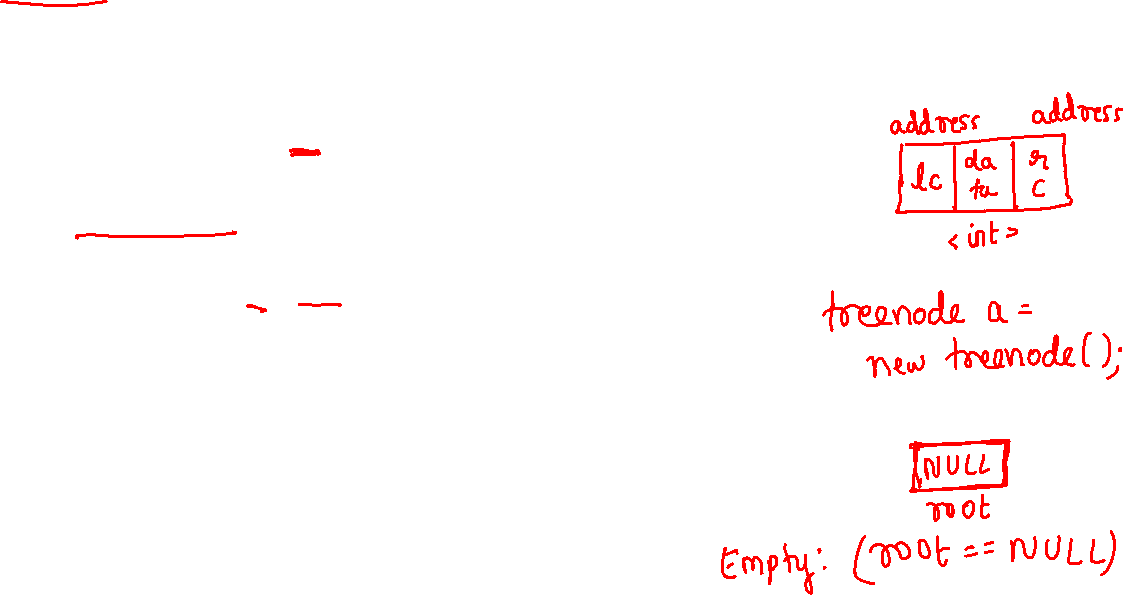 address address
lc data rc
<int>
treenode a =
new treenode();
NULL
root
Empty: (root == NULL)